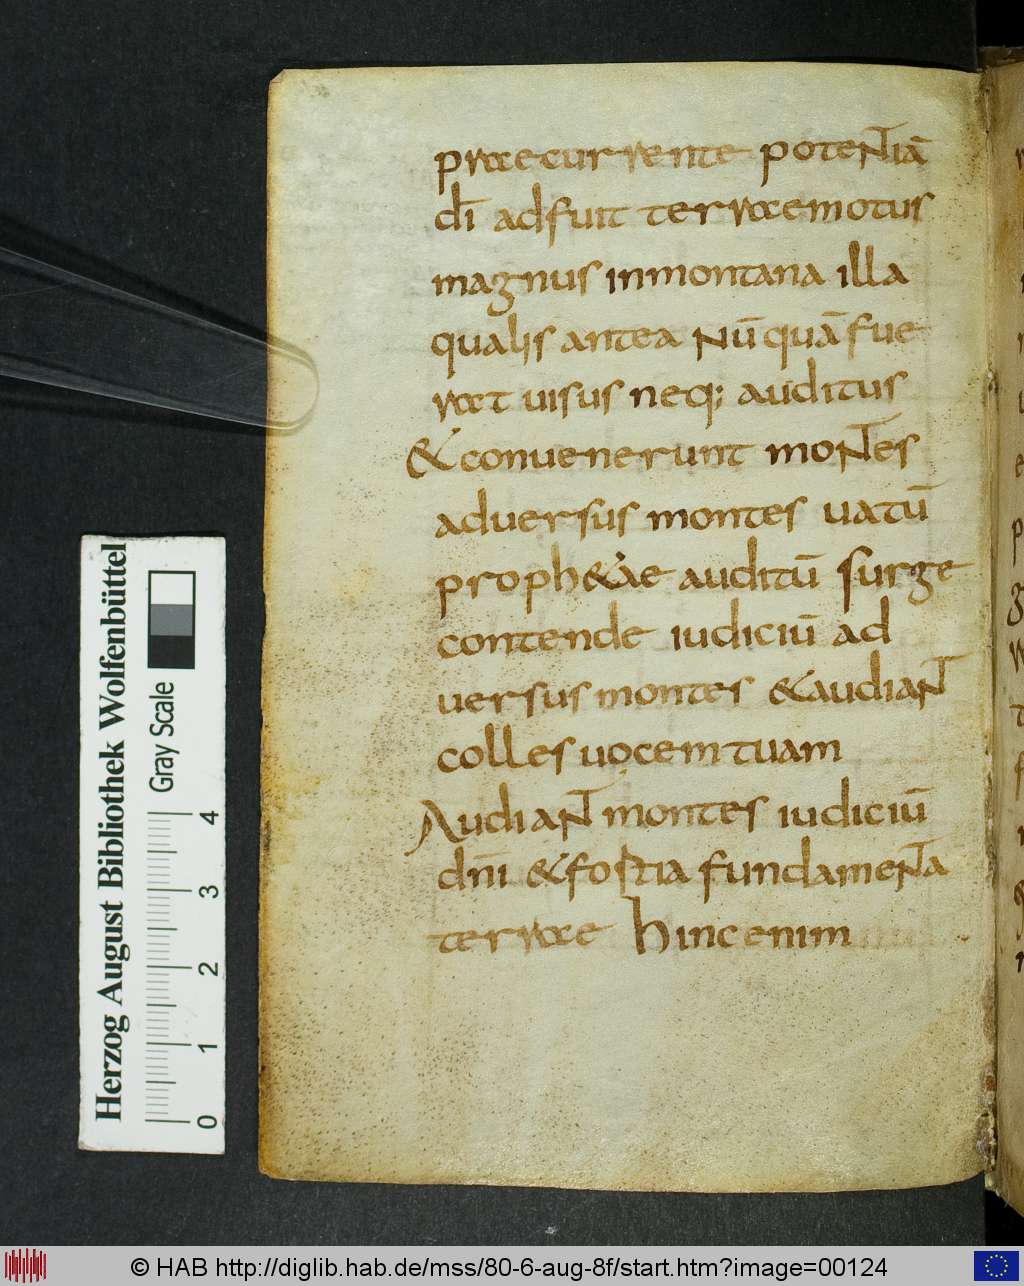 praecurrente potentiā
dī adfuit terraemotus
magnus inmontana illa
qualis antea nūquā fue
rat uisus neq; auditus
& conuenerunt montes
aduersus montes uatū
proph&ae auditū surge
contende iudiciū ad
uersus montes &audiant
colles uocem tuam
Audiant montes iudiciū
dn̄i &fortia fundamenta
terrae hincenim
Herzog August Bibliothek Wolfenbüttel
Gray Scale
0 1 2 3 4
© HAB http://diglib.hab.de/mss/80-6-aug-8f/start.htm?image=00124